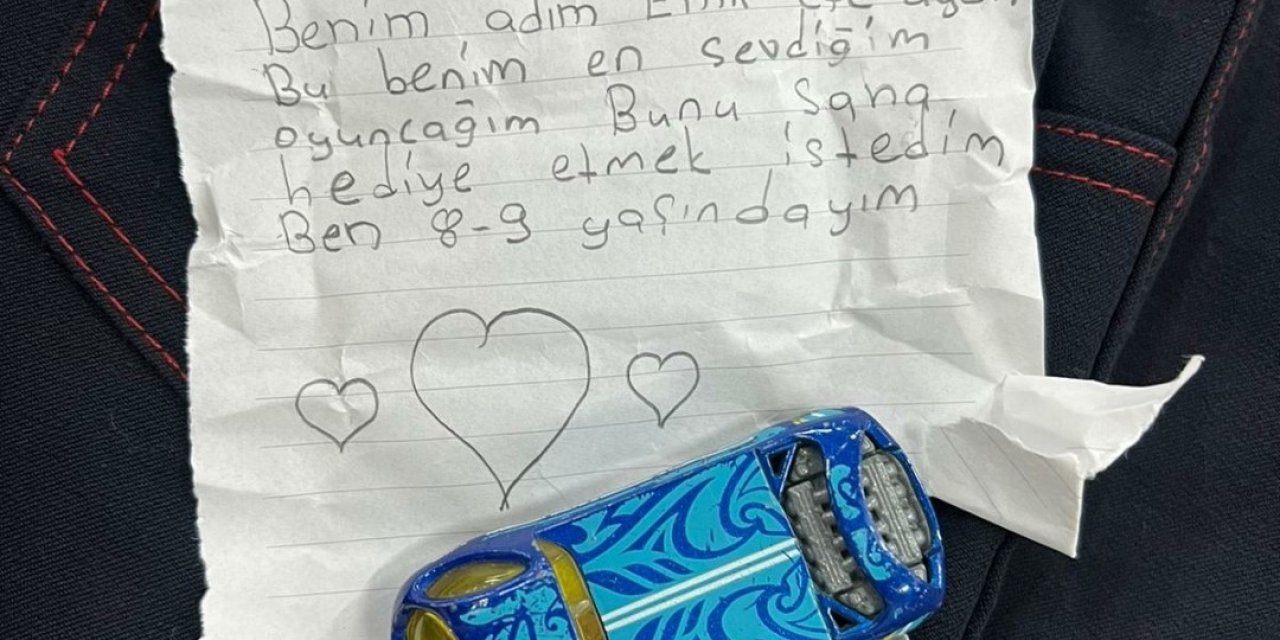 Benim adım
Bu benim en sevdiğim
oyuncağım Bunu sana
hediye etmek istedim
Ben 8-9 yaşındayım